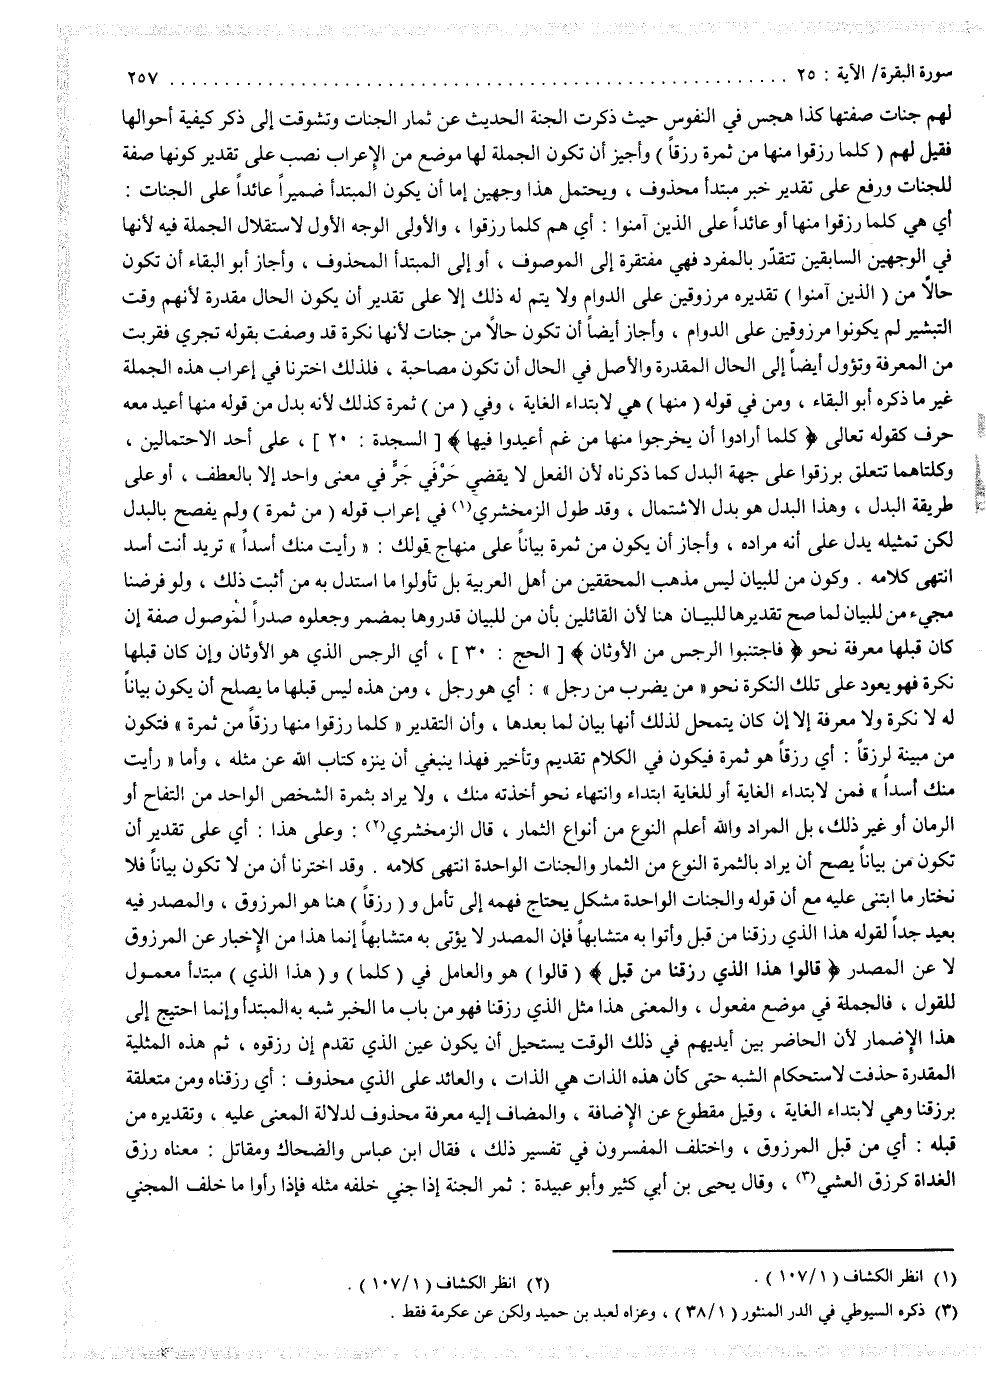 سورة البقرة/ الآية : ٢٥ . . . . . . . . . . . . . . . . . . . . . . . . . . . . . . . . . . . . . . . . . . . . . . . . . . . . . . ٢٥٧
لهم جنات صفتها كذا هجس في النفوس حيث ذكرت الجنة الحديث عن ثمار الجنات وتشوقت إلى ذكر كيفية أحوالها
فقيل لهم ( كلما رزقوا منها من ثمرة رزقاً ) وأجيز أن تكون الجملة لها موضع من الإعراب نصب على تقدير كونها صفة
للجنات ورفع على تقدير خبر مبتدأ محذوف ، ويحتمل هذا وجهين إما أن يكون المبتدأ ضميراً عائداً على الجنات :
أي هي كلما رزقوا منها أو عائداً على الذين آمنوا : أي هم كلما رزقوا ، والأولى الوجه الأول لاستقلال الجملة فيه لأنها
في الوجهين السابقين تتقدّر بالمفرد فهي مفتقرة إلى الموصوف ، أو إلى المبتدأ المحذوف ، وأجاز أبو البقاء أن تكون
حالاً من ( الذين آمنوا ) تقديره مرزوقين على الدوام ولا يتم له ذلك إلا على تقدير أن يكون الحال مقدرة لأنهم وقت
التبشير لم يكونوا مرزوقين على الدوام ، وأجاز أيضاً أن تكون حالاً من جنات لأنها نكرة قد وصفت بقوله تجري فقربت
من المعرفة وتؤول أيضاً إلى الحال المقدرة والأصل في الحال أن تكون مصاحبة ، فلذلك اخترنا في إعراب هذه الجملة
غير ما ذكره أبو البقاء ، ومن في قوله ( منها ) هي لابتداء الغاية ، وفي ( من ) ثمرة كذلك لأنه بدل من قوله منها أعيد معه
حرف كقوله تعالى ﴿ كلما أرادوا أن يخرجوا منها من غم أعيدوا فيها ﴾ [ السجدة : ٢٠ ] ، على أحد الاحتمالين ،
وكلتاهما تتعلق برزقوا على جهة البدل كما ذكرناه لأن الفعل لا يقضي حَرْفَي جَرٍّ في معنى واحد إلا بالعطف ، أو على
طريقة البدل ، وهذا البدل هو بدل الاشتمال ، وقد طول الزمخشري(١) في إعراب قوله ( من ثمرة ) ولم يفصح بالبدل
لكن تمثيله يدل على أنه مراده ، وأجاز أن يكون من ثمرة بياناً على منهاج قولك : « رأيت منك أسداً » تريد أنت أسد
انتهى كلامه . وكون من للبيان ليس مذهب المحققين من أهل العربية بل تأولوا ما استدل به من أثبت ذلك ، ولو فرضنا
مجيء من للبيان لما صح تقديرها للبيان هنا لأن القائلين بأن من للبيان قدروها بمضمر وجعلوه صدراً لموصول صفة إن
كان قبلها معرفة نحو ﴿ فاجتنبوا الرجس من الأوثان ﴾ [ الحج : ٣٠ ] ، أي الرجس الذي هو الأوثان وإن كان قبلها
نكرة فهو يعود على تلك النكرة نحو « من يضرب من رجل » : أي هو رجل ، ومن هذه ليس قبلها ما يصلح أن يكون بياناً
له لا نكرة ولا معرفة إلا إن كان يتمحل لذلك أنها بيان لما بعدها ، وأن التقدير « كلما رزقوا منها رزقاً من ثمرة » فتكون
من مبينة لرزقاً : أي رزقاً هو ثمرة فيكون في الكلام تقديم وتأخير فهذا ينبغي أن ينزه كتاب الله عن مثله ، وأما « رأيت
منك أسداً » فمن لابتداء الغاية أو للغاية ابتداء وانتهاء نحو أخذته منك ، ولا يراد بثمرة الشخص الواحد من التفاح أو
الرمان أو غير ذلك، بل المراد والله أعلم النوع من أنواع الثمار ، قال الزمخشري(٢) : وعلى هذا : أي على تقدير أن
تكون من بياناً يصح أن يراد بالثمرة النوع من الثمار والجنات الواحدة انتهى كلامه . وقد اخترنا أن من لا تكون بياناً فلا
نختار ما ابتنى عليه مع أن قوله والجنات الواحدة مشكل يحتاج فهمه إلى تأمل و ( رزقاً ) هنا هو المرزوق ، والمصدر فيه
بعيد جداً لقوله هذا الذي رزقنا من قبل وأتوا به متشابهاً فإن المصدر لا يؤتى به متشابهاً إنما هذا من الإخبار عن المرزوق
لا عن المصدر ﴿ قالوا هذا الذي رزقنا من قبل ﴾ ( قالوا ) هو والعامل في ( كلما ) و ( هذا الذي ) مبتدأ معمول
للقول ، فالجملة في موضع مفعول ، والمعنى هذا مثل الذي رزقنا فهو من باب ما الخبر شبه به المبتدأ وإنما احتيج إلى
هذا الإضمار لأن الحاضر بين أيديهم في ذلك الوقت يستحيل أن يكون عين الذي تقدم إن رزقوه ، ثم هذه المثلية
المقدرة حذفت لاستحكام الشبه حتى كأن هذه الذات هي الذات ، والعائد على الذي محذوف : أي رزقناه ومن متعلقة
برزقنا وهي لابتداء الغاية ، وقيل مقطوع عن الإضافة ، والمضاف إليه معرفة محذوف لدلالة المعنى عليه ، وتقديره من
قبله : أي من قبل المرزوق ، واختلف المفسرون في تفسير ذلك ، فقال ابن عباس والضحاك ومقاتل : معناه رزق
الغداة كرزق العشي(٣) ، وقال يحيى بن أبي كثير وأبو عبيدة : ثمر الجنة إذا جني خلفه مثله فإذا رأوا ما خلف المجني
(١) انظر الكشاف ( ١٠٧/١ ) .
(٢) انظر الكشاف ( ١٠٧/١ ) .
(٣) ذكره السيوطي في الدر المنثور ( ٣٨/١ ) ، وعزاه لعبد بن حميد ولكن عن عكرمة فقط .